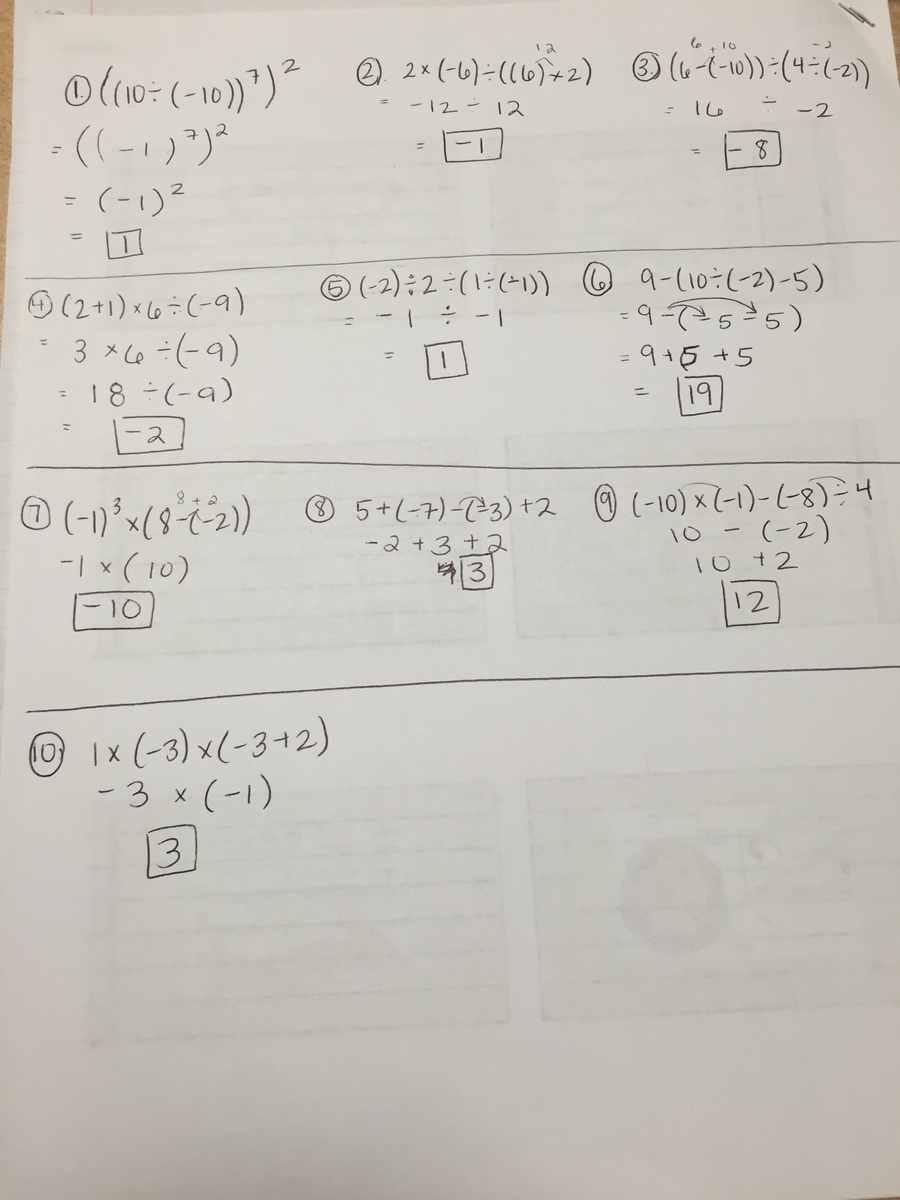 ① ((10÷(-10))⁷)²
= ((-1)⁷)²
= (-1)²
= 1
12
② 2×(-6)÷((6)×2)
= -12 ÷ 12
= -1
6 +10 -2
③ (6-(-10))÷(4÷(-2))
= 16 ÷ -2
= -8
④ (2+1)×6÷(-9)
= 3×6÷(-9)
= 18÷(-9)
= -2
⑤ (-2)÷2÷(1÷(-1))
= -1 ÷ -1
= 1
⑥ 9-(10÷(-2)-5)
= 9-(-5-5)
= 9+5+5
= 19
8+2
⑦ (-1)³×(8-(-2))
-1×(10)
-10
⑧ 5+(-7)-(-3)+2
-2+3+2
3
⑨ (-10)×(-1)-(-8)÷4
10 - (-2)
10 +2
12
⑩ 1×(-3)×(-3+2)
-3 × (-1)
3